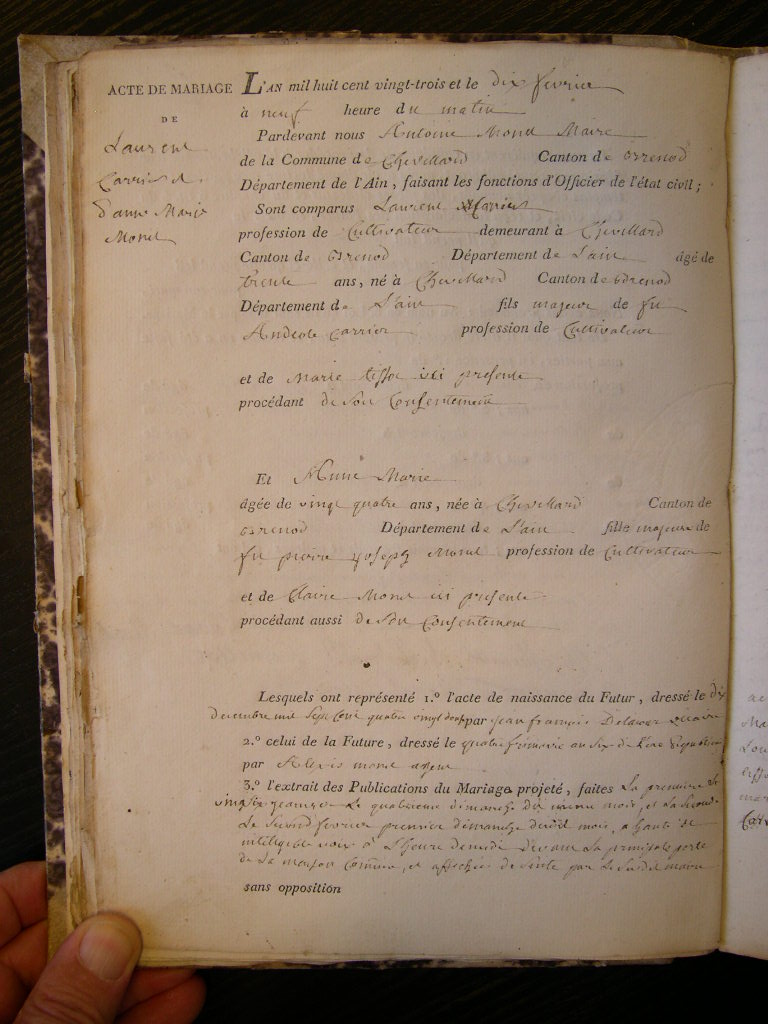 ACTE DE MARIAGE
DE
Laurent
Carrier &
d'anne Marie
Monet
L'AN mil huit cent vingt-trois et le dix fevrier
à neuf heure du matin
Pardevant nous Antoine Monet Maire
de la Commune de Chevillard Canton de Brenod
Département de l'Ain, faisant les fonctions d'Officier de l'état civil;
Sont comparus Laurent Carrier
profession de Cultivateur demeurant à Chevillard
Canton de Brenod Département de L'ain âgé de
trente ans, né à Chevillard Canton de Brenod
Département de L'ain fils majeur de fu
Carrier profession de Cultivateur
et de Marie tissot ici presente
procédant de Son Consentement
Et Anne Marie
âgée de vingt quatre ans, née à Chevillard Canton de
Brenod Département de L'ain fille majeure de
fu pierre Joseph Monet profession de Cultivateur
et de Claire Monet ici presente
procédant aussi de Son Consentement
Lesquels ont représenté 1.º l'acte de naissance du Futur, dressé le dix
decembre mil Sept Cent quatre vingt par jean francois
2.º celui de la Future, dressé le quatre frimaire an Six de L'ere
par Alexis monet
3.º l'extrait des Publications du Mariage projeté, faites La premiere le
vingt Six janvier Le quatrieme dimanche du meme mois, et La Seconde
Le Second fevrier premier dimanche dudit mois, a haute et
intelligible voix à L'heure de midi devant La principale porte
de La maison Commune, et affichées de Suite par Le Susdit maire
sans opposition